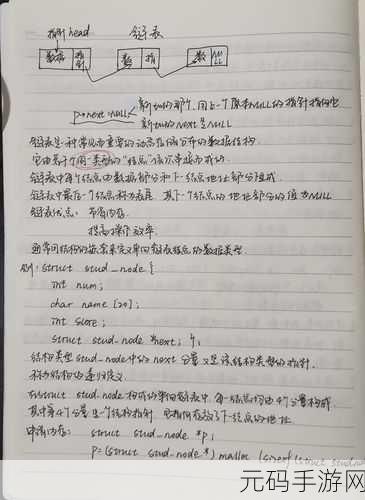 指针head 链表
数据 指针 数 指 数 NULL
p->next=null 新加的那个，用上一个原本NULL的指针指向它
新加的next是NULL
链表是一种常见而重要的动态存储分布的数据结构
它由若干个同一类型的"结点"依次串接而成的
链表中每个结点由数据部分和下一结点地址部分组成
链表中最后一个结点称为表尾，其下一个结点的地址部分的值为NULL
链表优点：节省内存
提高操作效率
通常用结构的嵌套来定义单向链表结点的数据类型
例：struct stud_node {
int num;
char name [20];
int score;
struct stud_node *next; };
结构类型stud_node中的next分量又是该结构类型的指针
称为结构的递归定义
在struct stud_node构成的单向链表中，每一结点均由4个分量构成
其中第4个分量是一个结构指针，它指向存放了下一结点的地址
申请内存： struct stud_node *p;
p=(struct stud_node *) malloc (sizeof(struct stud_node
元码手游网